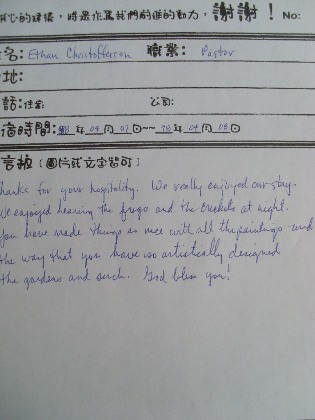 心的建議，將是作為我們前進的動力，謝謝！ No:
名: Ethan Christofferson 職業: Pastor
地:
話:住家: 公司:
宿時間: 年 04 月 07 日~~ 年 04 月 08 日
言板 (圖片或文字皆可)
hanks for your hospitality. We really enjoyed our stay.
We enjoyed hearing the frogs and the crickets at night.
You have made things so nice with all the paintings and
the way that you have so artistically designed
the gardens and such. God bless you!